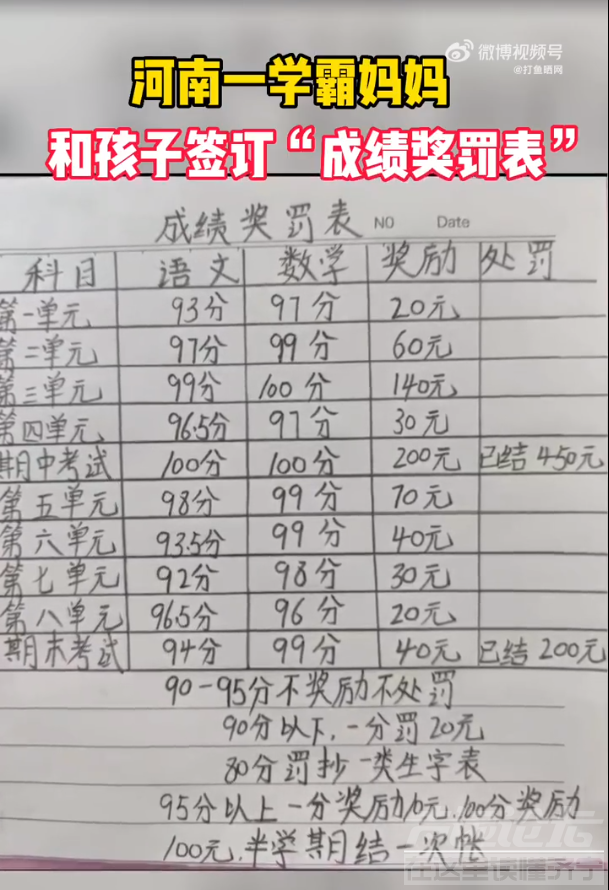 微博视频号
@打鱼晒网
河南一学霸妈妈
和孩子签订“成绩奖罚表”
成绩奖罚表 NO Date
科目 语文 数学 奖励 处罚
第一单元 93分 97分 20元
第二单元 97分 99分 60元
第三单元 99分 100分 140元
第四单元 96.5分 97分 30元
期中考试 100分 100分 200元 已结450元
第五单元 98分 99分 70元
第六单元 93.5分 99分 40元
第七单元 92分 98分 30元
第八单元 96.5分 96分 20元
期末考试 94分 99分 40元 已结200元
90-95分不奖励不处罚
90分以下,一分罚20元
80分罚抄一类生字表
95分以上一分奖励10元.100分奖励
100元.半学期结一次帐
在这里读懂齐宁